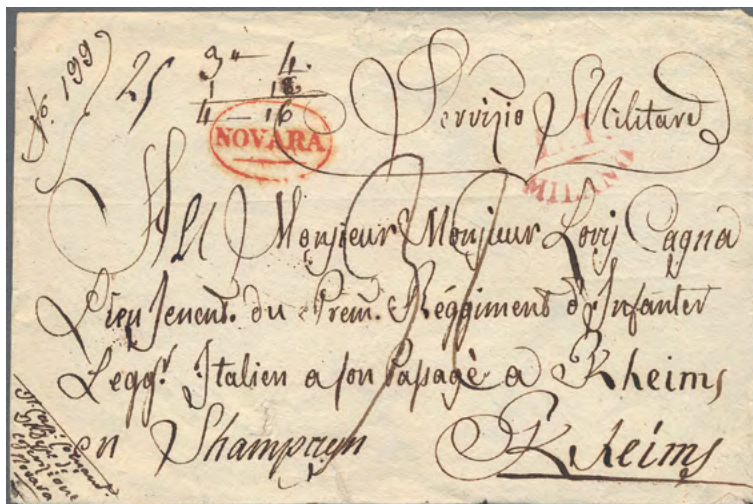 No. 199
25
3 " 4
1 12
4 — 16
NOVARA
Servizio Militare
MILANO
All Monsieur Monsieur Lovij Cagna
Lieu Tenent. du Prem. Réggiment d'Infanter
Legg.r Italien a son Passagè a Rheims
en Shampayn Rheims
Novara